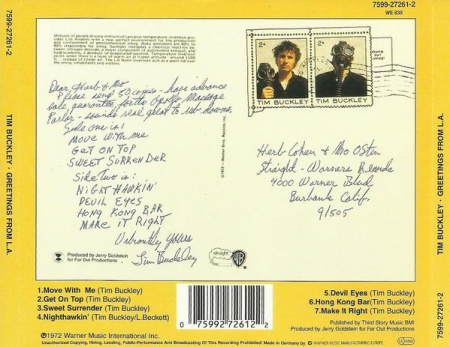 7599-27261-2
WE 835
7599-27261-2
TIM BUCKLEY · GREETINGS FROM L.A.
TIM BUCKLEY · GREETINGS FROM L.A.
2¢
2¢
TIM BUCKLEY
TIM BUCKLEY
Dear Herb & Mo
Please send 50 copies - have advance
sale guarantee for the Apollo Massage
Parlor - sounds real great to rub-downs.
Side one is:
MOVE WITH ME
GET ON TOP
SWEET SURRENDER
SIDE TWO is:
NIGHT HAWKIN'
DEVIL EYES
HONG KONG BAR
MAKE IT RIGHT
Yours
Tim Buckley
Herb Cohen & Mo Ostin
Straight - Warners Records
4000 Warner Blvd
Burbank Calif.
91505
Produced by Jerry Goldstein
for Far Out Productions
straight
WB
1.Move With Me (Tim Buckley)
2.Get On Top (Tim Buckley)
3.Sweet Surrender (Tim Buckley)
4.Nighthawkin' (Tim Buckley/L.Beckett)
5.Devil Eyes (Tim Buckley)
6.Hong Kong Bar(Tim Buckley)
7.Make It Right (Tim Buckley)
Published by Third Story Music BMI
Produced by Jerry Goldstein for Far Out Productions
0 75992 72612 2
℗1972 Warner Music International Inc.